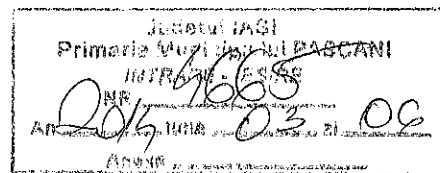 Judetul IASI
Primaria Municipiului PASCANI
INTRARE - IESIRE
NR. 4665
An 2014 luna 03 zi 06
Anexe